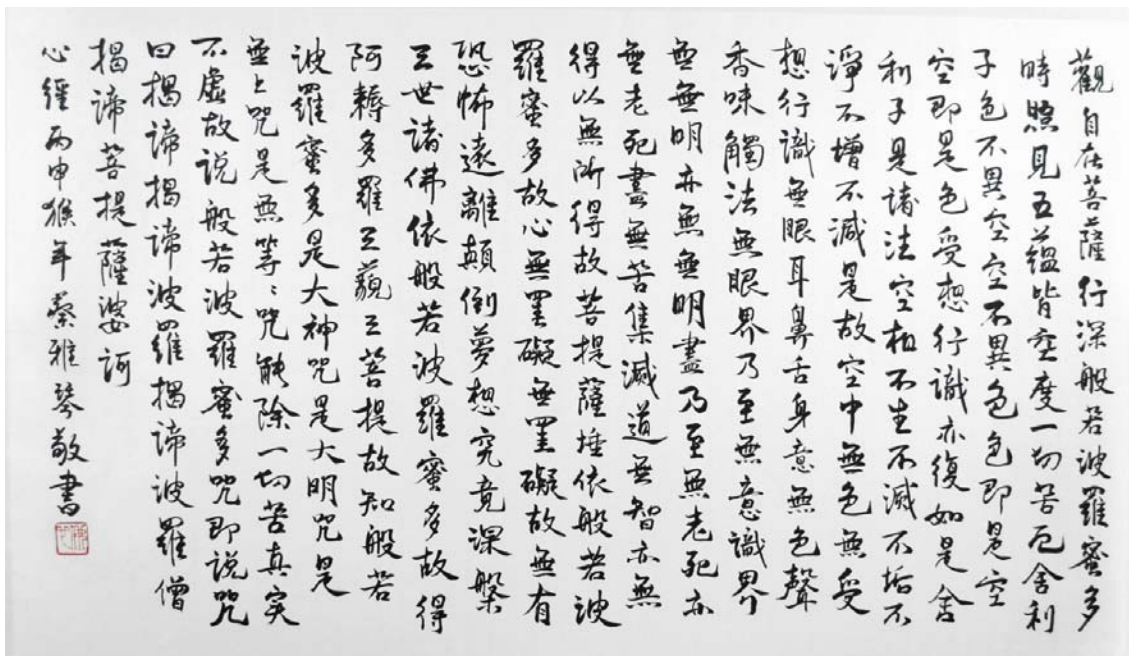 觀自在菩薩行深般若波羅蜜多
時照見五蘊皆空度一切苦厄舍利
子色不異空空不異色色即是空
空即是色受想行識亦復如是舍
利子是諸法空相不生不滅不垢不
淨不增不減是故空中無色無受
想行識無眼耳鼻舌身意無色聲
香味觸法無眼界乃至無意識界
無無明亦無無明盡乃至無老死亦
無老死盡無苦集滅道無智亦無
得以無所得故菩提薩埵依般若波
羅蜜多故心無罣礙無罣礙故無有
恐怖遠離顛倒夢想究竟涅槃
三世諸佛依般若波羅蜜多故得
阿耨多羅三藐三菩提故知般若
波羅蜜多是大神咒是大明咒是
無上咒是無等〻咒能除一切苦真实
不虛故说般若波羅蜜多咒即说咒
曰揭諦揭諦波羅揭諦波羅僧
揭諦菩提薩婆訶
心經丙申猴年蔡雅琴敬書